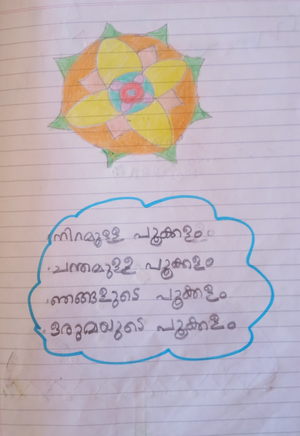 നിറമുള്ള പൂക്കളം
ചന്തമുള്ള പൂക്കളം
ഞങ്ങളുടെ പൂക്കളം
ഒരുമയുടെ പൂക്കളം